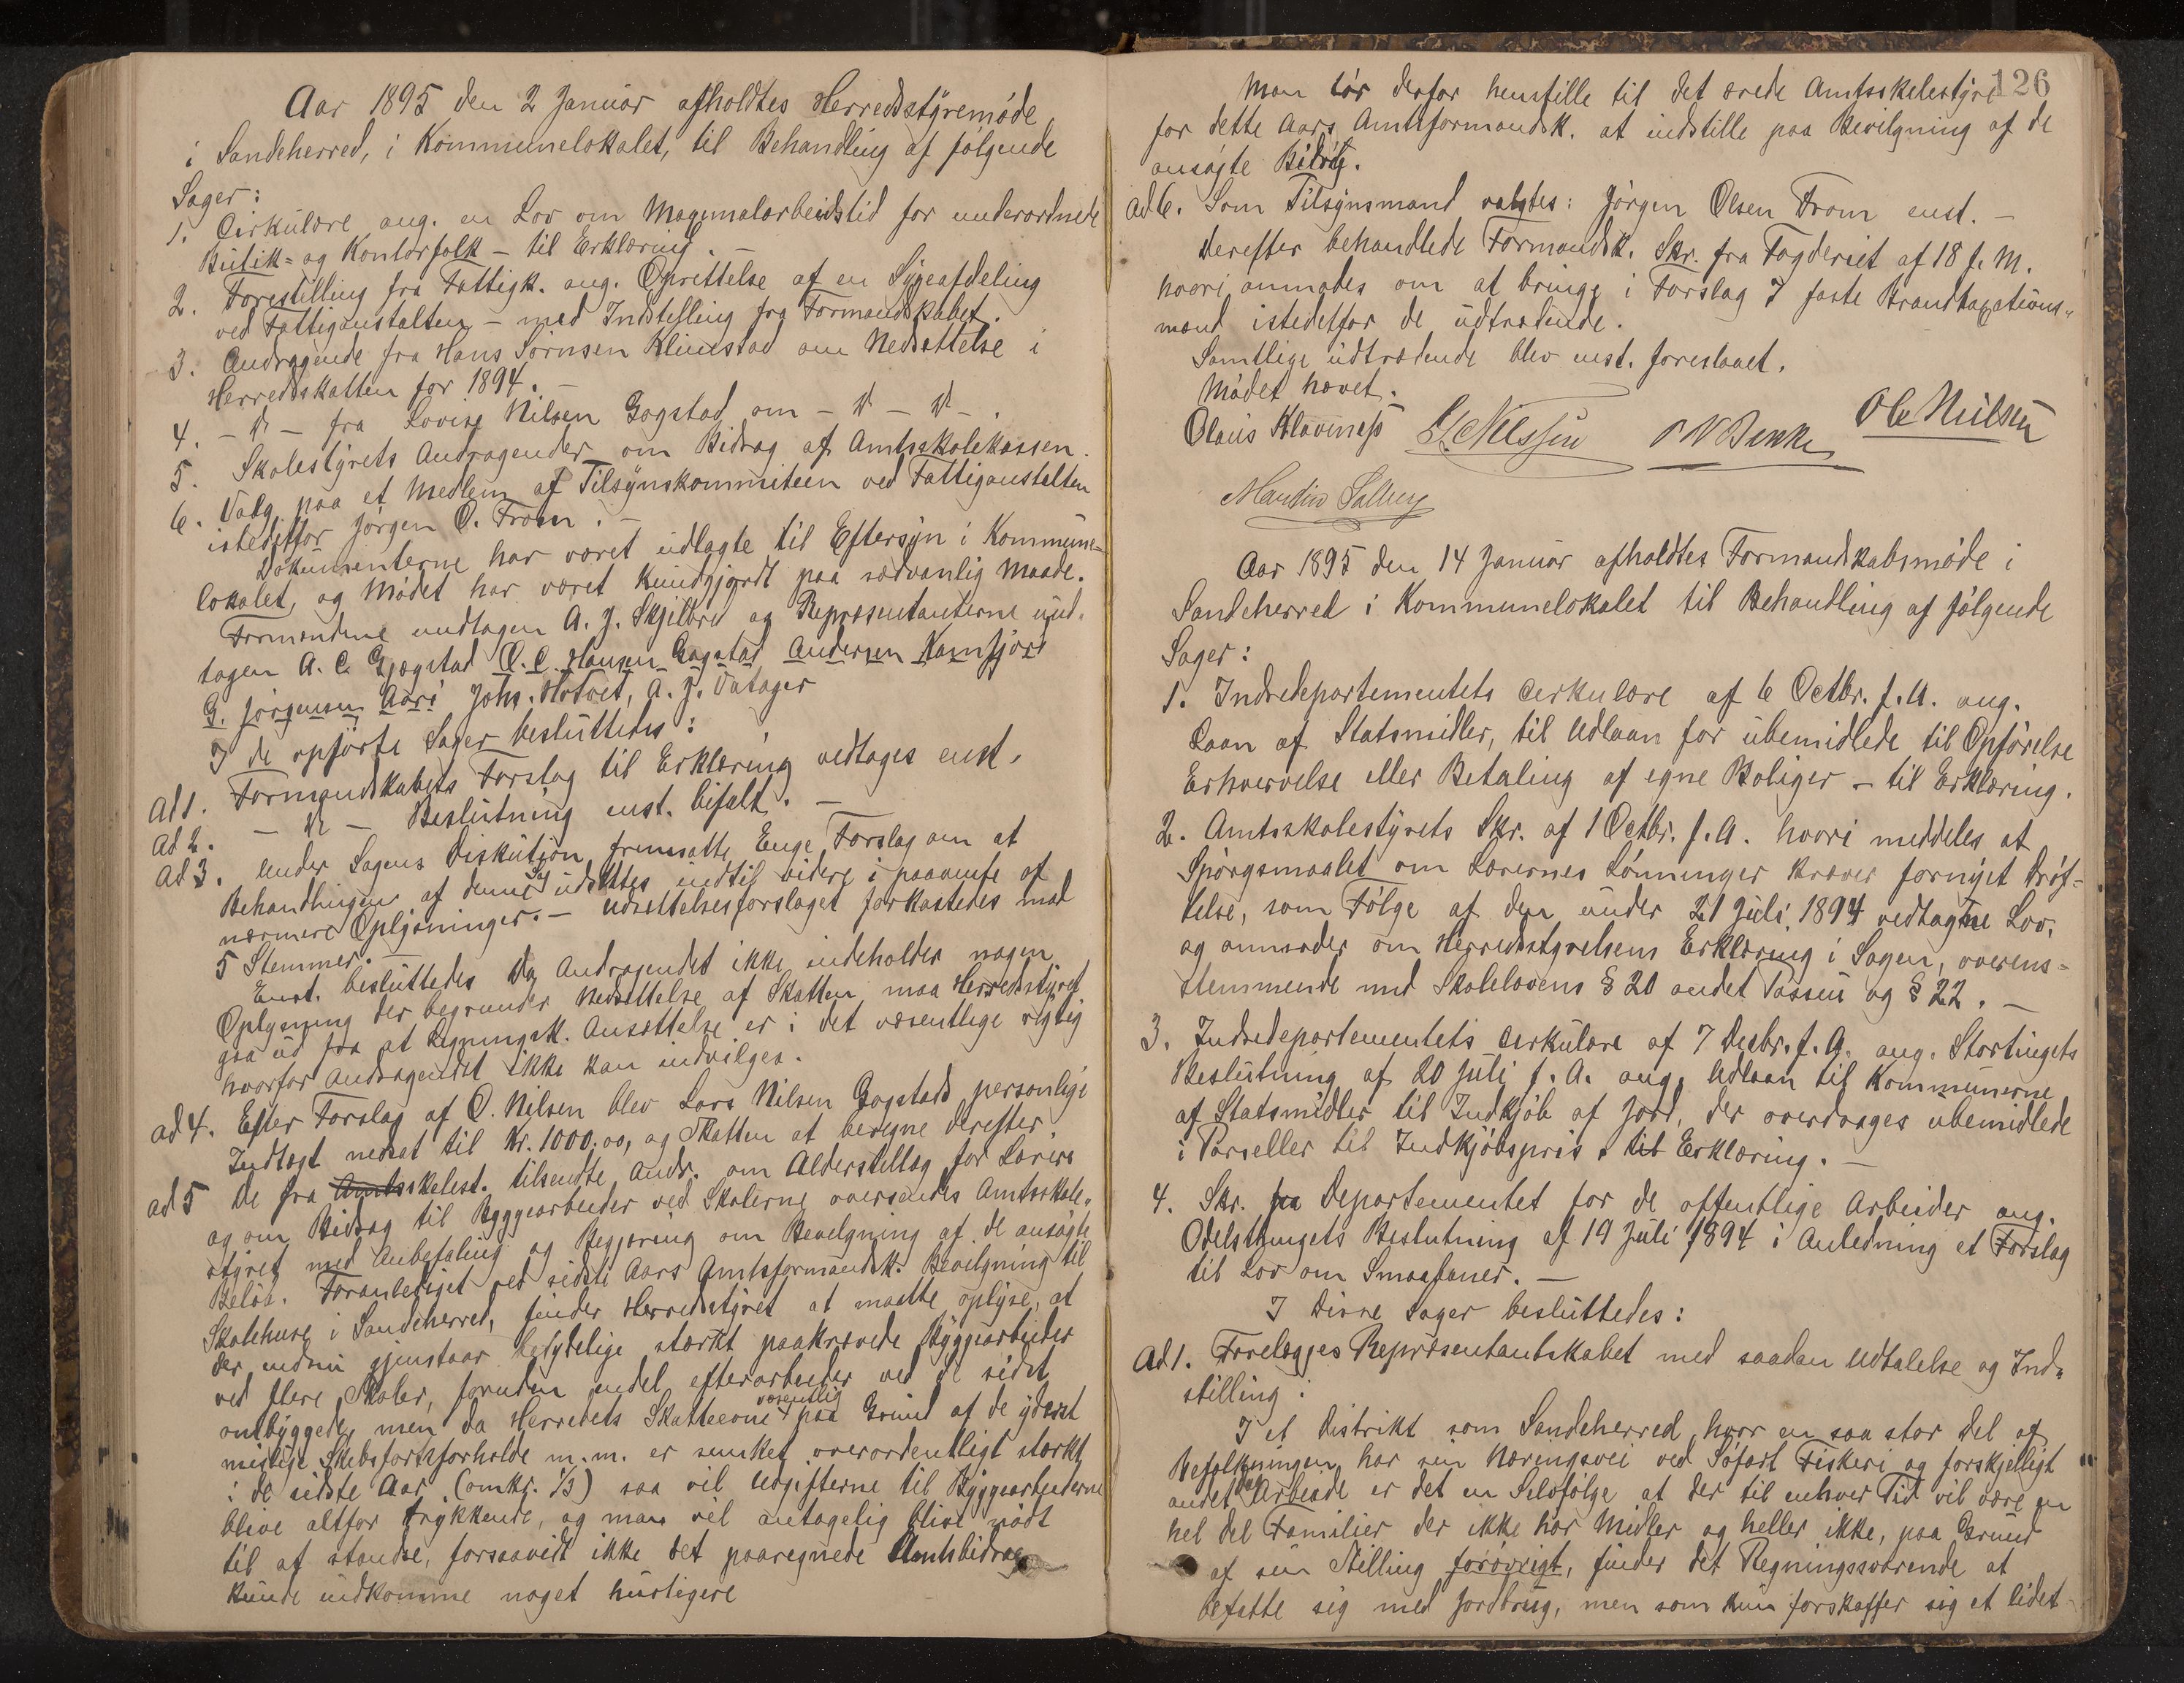 Aar 1895 den 2 Januar afholdtes Herredsstyremøde
i Sandeherred, i Kommunelokalet, til Behandling af følgende
Sager:
1. Cirkulære ang. en Lov om Maximalarbeidstid for underordnede
Butik- og Kontorfolk – til Erklæring. –
2. Forestilling fra Fattigk. ang. Oprettelse af en Sygeafdeling
ved Fattiganstalten – med Indstilling fra Formandskabet.
3. Andragende fra Hans Sørnsen Klinestad om Nedsættelse i
Herredsskatten for 1894. –
4. – d – fra Lovise Nilsen Gogstad om – d – d –.
5. Skolestyrets Andragender om Bidrag af Amtsskolekassen.
6. Valg paa et Medlem af Tilsynskommiteen ved Fattiganstalten
istedetfor Jørgen O. From. –
Dokumenterne har været udlagte til Eftersyn i Kommune-
lokalet, og Mødet har været kundgjordt paa sædvanlig Maade.
Formændene undtagen A. J. Skjelbred og Repræsentanterne und-
tagen A. C. Gjøgstad O. C. Hansen Gogstad Andersen Kamfjord
G. Jørgensen Aarø Johs. Hotvet, A. J. Vatager
I de opførte Sager besluttedes:
Ad 1. Formandskabets Forslag til Erklæring vedtages enst.
Ad 2. – d – Beslutning enst. bifalt. –
Ad 3. Under Sagens Diskution fremsatte Enge Forslag om at
Behandlingen af denne Sag udsættes indtil videre i paavente af
nærmere Oplysninger. – Udsættelsesforslaget forkastedes mod
5 Stemmer. –
Enst. besluttedes Da Andragendet ikke indeholder nogen
Oplysning der begrunder Nedsættelse af Skatten maa Herredsstyret
gaa ud fra at Ligningsk. Ansættelse er i det væsentlige rigtig
hvorfor Andragendet ikke kan indvilges.
ad 4. Efter Forslag af O. Nilsen blev Lars Nilsen Gogstads personlige
Indtægt nedsat til Kr. 1000.00, og Skatten at beregne derefter.
ad 5 De fra Amtsskolest. tilsendte Andr. om Alderstillæg for Lærere
og om Bidrag til Byggearbeider ved Skolerne oversendes Amtsskole-
styret med Anbefaling og Begjæring om Bevilgning af de ansøgte
Beløb. Foranlediget ved sidste Aars Amtsformandsk. Bevilgning til
Skolehuse i Sandeherred, finder Herredsstyret at maatte oplyse, at
der endnu gjenstaar betydelige stærkt paakrævede Byggearbeider
ved flere Skoler, foruden endel efterarbeider ved de sidst
ombyggede, men da Herredets Skatteevne væsentlig paa Grund af de yderst
mislige Skibsfartsforholde m.m. er sunket overordentligt stærkt
i de sidste Aar (omkr. 1/3) saa vil Udgifterne til Byggearbeiderne
blive altfor trykkende, og man vil antagelig blive nødt
til at standse, forsaavidt ikke det paaregnede Amtsbidrag
kunde indkomme noget hurtigere
126
Man tør derfor henstille til det ærede Amtsskolestyre
for dette Aars Amtsformandsk. at indstille paa Bevilgning af de
ansøgte Bidrag.
ad 6. Som Tilsynsmand valgtes: Jørgen Olsen From enst. –
Derefter behandlede Formandsk. Skr. fra Fogderiet af 18 f. M.
hvori anmodes om at bringe i Forslag 7 faste Brandtaxations-
mænd istedetfor de udtrædende.
Samtlige udtrædende blev enst. foreslaaet.
Mødet hævet.
Olaus Klavenes L. Nilssen Ole Nielsen
Aar 1895 den 14 Januar afholdtes Formandskabsmøde i
Sandeherred i Kommunelokalet til Behandling af følgende
Sager:
1. Indredepartementets Cirkulære af 6 Octbr. f. A. ang.
Laan af Statsmidler, til Udlaan for ubemidlede til Opførelse
Erhvervelse eller Betaling af egne Boliger – til Erklæring.
2. Amtsskolestyrets Skr. af 1 Octbr. f. A. hvori meddeles at
Spørgsmaalet om Lærernes Lønninger kræver fornyet Drøf-
telse, som Følge af den under 21 Juli 1894 vedtagne Lov,
og anmoder om Herredsstyrelsens Erklæring i Sagen, overens-
stemmende med Skolelovens § 20 andet Passus og § 22. –
3. Indredepartementets Cirkulære af 7 Decbr. f. A. ang. Stortingets
Beslutning af 20 Juli f. A. ang. Udlaan til Kommunerne
af Statsmidler til Indkjøb af Jord, der overdrages ubemidlede
i Parseller til Indkjøbspris. til Erklæring. –
4. Skr. fra Departementet for de offentlige Arbeider ang.
Odelsthingets Beslutning af 19 Juli 1894 i Anledning et Forslag
til Lov om Smaabaner. –
I Disse Sager besluttedes:
Ad 1. Forelægges Repræsentantskabet med saadan Udtalelse og Ind-
stilling:
I et Distrikt som Sandeherred hvor en saa stor Del af
Befolkningen har sin Næringsvei ved Søfart Fiskeri og forskjelligt
andet Arbeide er det en Selvfølge at der til enhver Tid vil være en
hel del Familier der ikke har Midler og heller ikke, paa Grund
af sin Stilling forøvrigt, finder det Regningssvarende at
befatte sig med Jordbrug, men som kun forskaffer sig et lidet